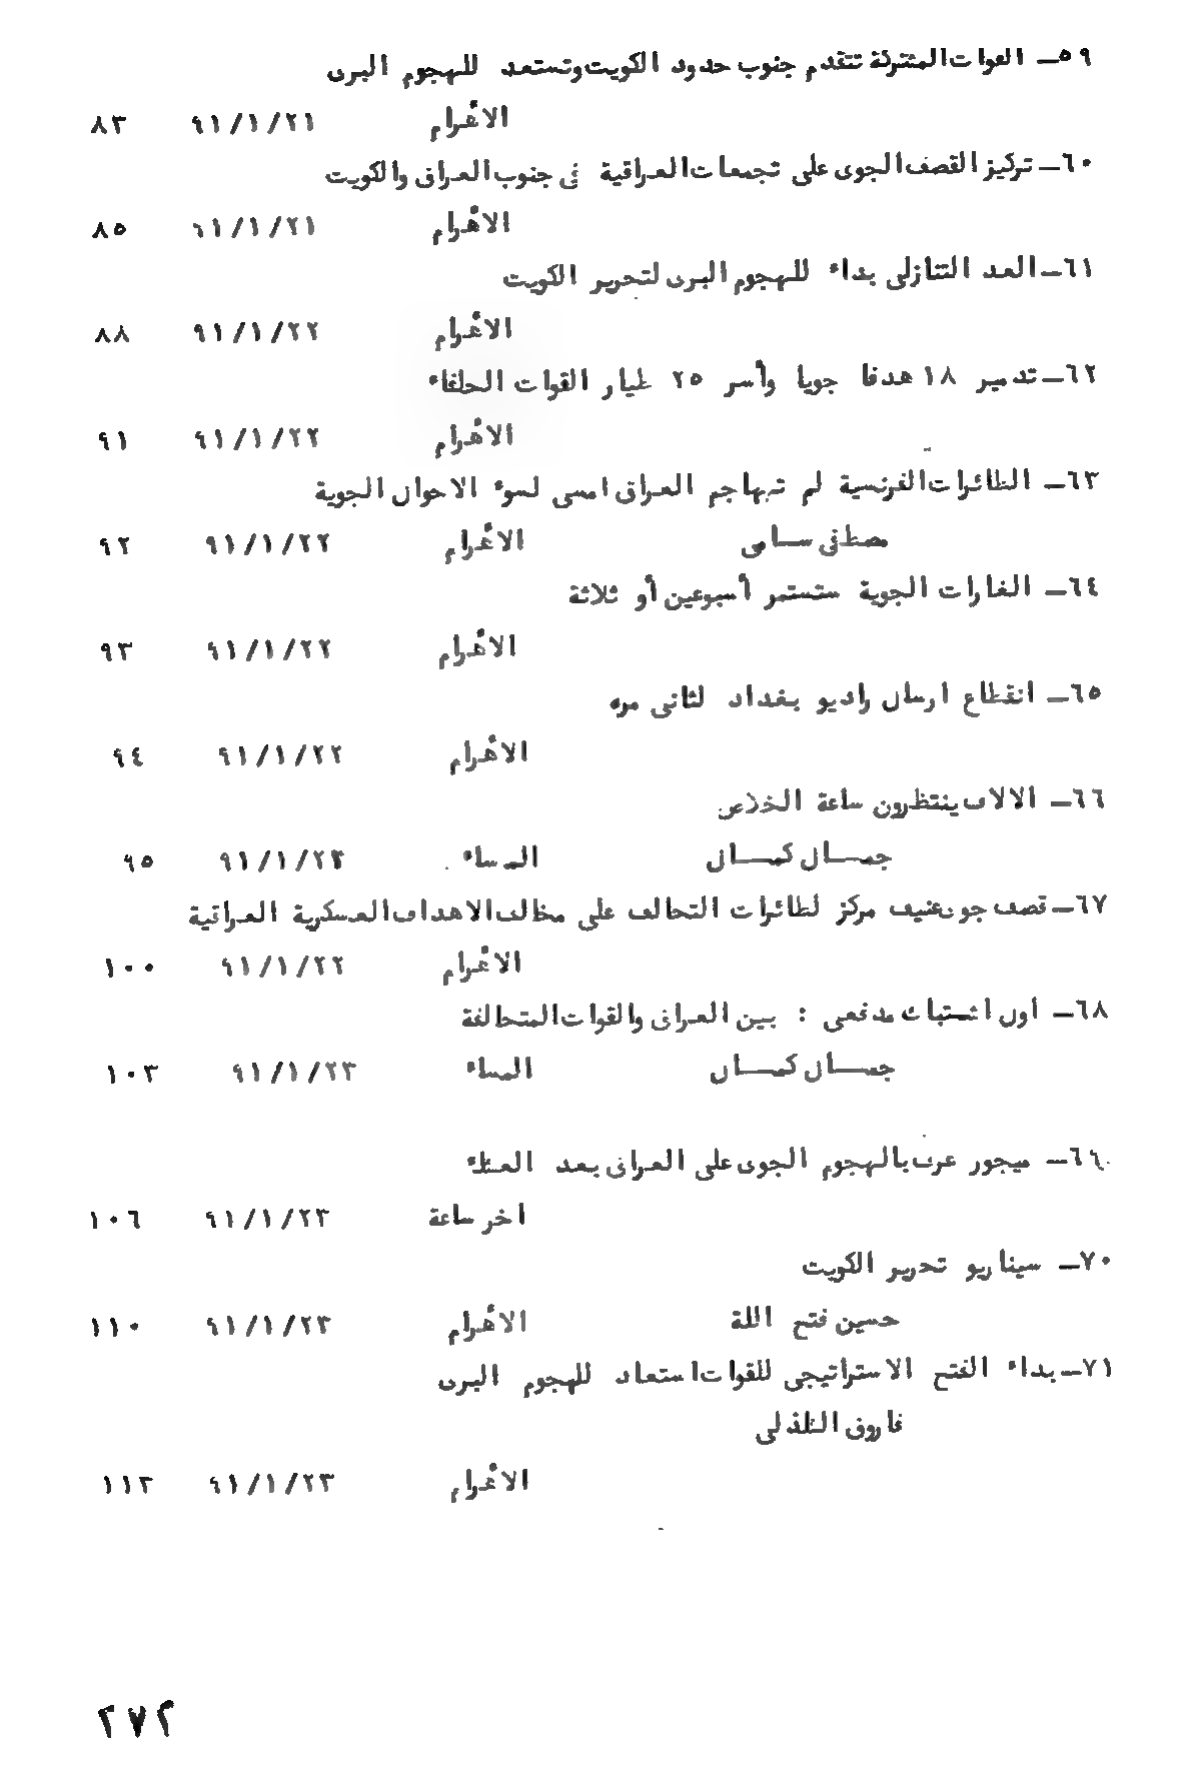 ٥٩ـ القوات المشتركة تتقدم جنوب حدود الكويت وتستعد للهجوم البرى
الأهرام ٩١/١/٢١ ٨٣
٦٠ـ تركيز القصف الجوى على تجمعات العراقية فى جنوب العراق والكويت
الأهرام ٩١/١/٢١ ٨٥
٦١ـ العد التنازلى بداء للهجوم البرى لتحرير الكويت
الأهرام ٩١/١/٢٢ ٨٨
٦٢ـ تدمير ١٨ هدفا جويا وأسر ٢٥ طيار القوات الحلفاء
الأهرام ٩١/١/٢٢ ٩١
٦٣ـ الطائرات الفرنسية لم تهاجم العراق امسى لسوء الاحوال الجوية
مصطفى سامى الأهرام ٩١/١/٢٢ ٩٢
٦٤ـ الغارات الجوية ستستمر أسبوعين أو ثلاثة
الأهرام ٩١/١/٢٢ ٩٣
٦٥ـ انقطاع ارسال راديو بغداد لثانى مره
الأهرام ٩١/١/٢٢ ٩٤
٦٦ـ الالاف ينتظرون ساعة الخلاص
جمال كمال المساء ٩١/١/٢٢ ٩٥
٦٧ـ قصف جوى عنيف مركز لطائرات التحالف على مخالف الاهداف العسكرية العراقية
الأهرام ٩١/١/٢٢ ١٠٠
٦٨ـ اول اشتباك مدفعى : بين العراق والقوات المتحالفة
جمال كمال المساء ٩١/١/٢٣ ١٠٣
٦٩ـ ميجور عرف بالهجوم الجوى على العراق بعد العشاء
اخر ساعة ٩١/١/٢٣ ١٠٦
٧٠ـ سيناريو تحرير الكويت
حسين فتح اللة الأهرام ٩١/١/٢٣ ١١٠
٧١ـ بداء الفتح الاستراتيجى للقوات استعداد للهجوم البرى
فاروق
الأهرام ٩١/١/٢٣ ١١٢
٢٧٢